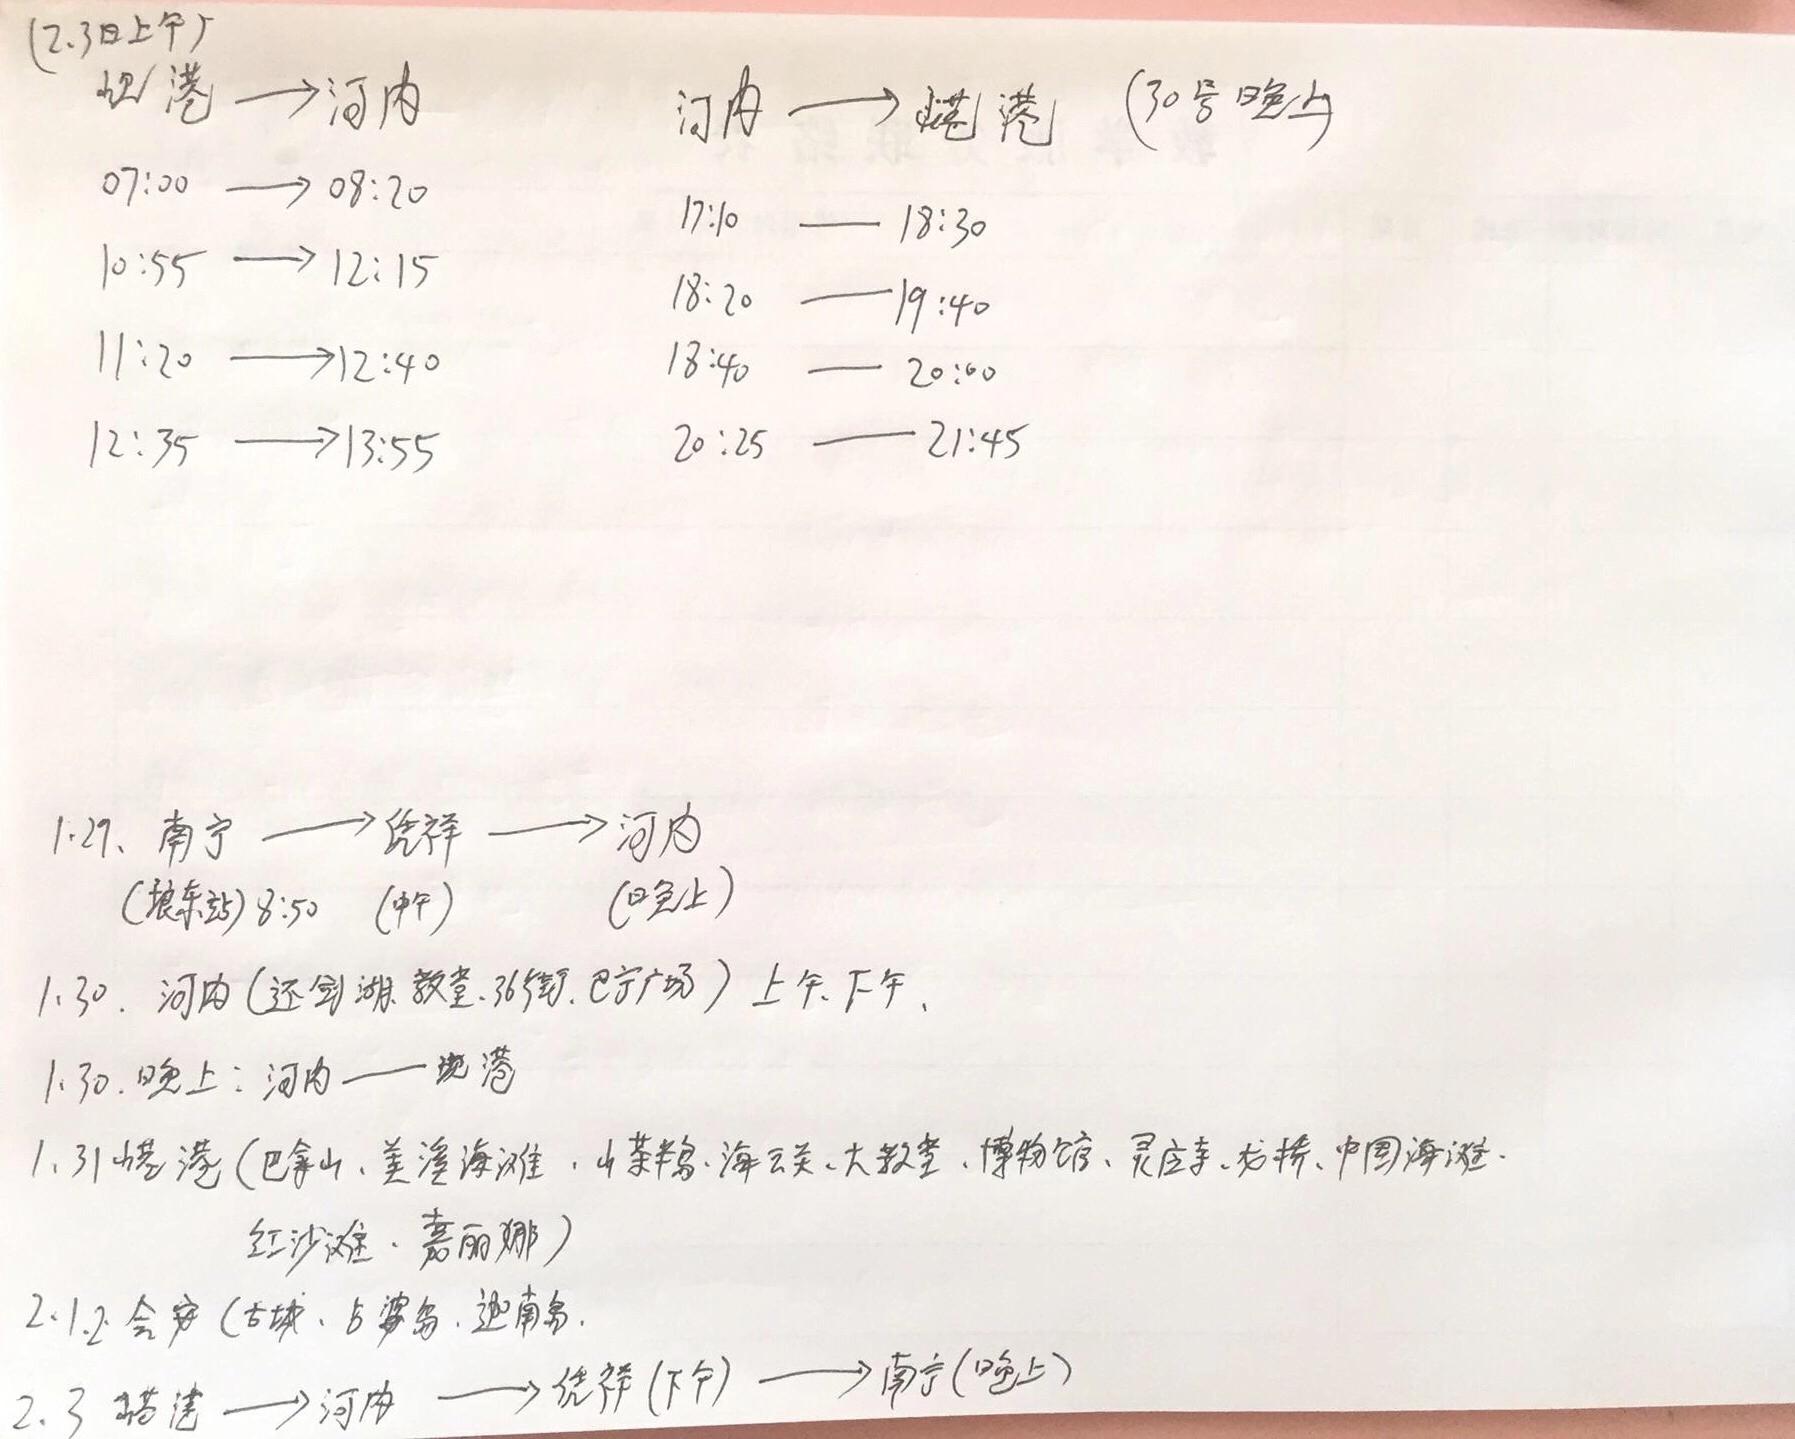 (2.3日上午)
岘港 → 河内
07:00 → 08:20
10:55 → 12:15
11:20 → 12:40
12:35 → 13:55
河内 → 岘港 (30号晚上)
17:10 — 18:30
18:20 — 19:40
18:40 — 20:00
20:25 — 21:45
1.29、南宁 → 凭祥 → 河内
(琅东站) 8:50 (中午) (晚上)
1.30. 河内(还剑湖.教堂.36街.巴宁广场)上午、下午、
1.30.晚上:河内 — 岘港
1.31 岘港(巴拿山、美溪海滩、山茶半岛、海云关、大教堂、博物馆、灵应寺、龙桥、中国海滩.
红沙滩、嘉丽娜)
2.1.2 会安(古城、占婆岛、迦南岛.
2.3 岘港 → 河内 → 凭祥(下午) → 南宁(晚上)